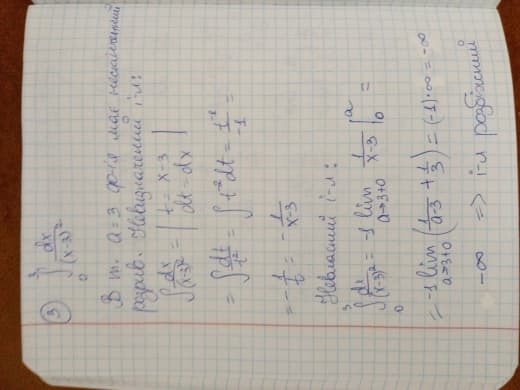 3) ∫₀³ dx/(x-3)²
В т. a=3 ф-ія має нескінченний
розрив. Невизначений і-л:
∫ dx/(x-3)² = | t = x-3 | dt = dx |
= ∫ dt/t² = ∫ t⁻² dt = t⁻¹/-1 =
= - 1/t = - 1/(x-3)
Невласний і-л:
∫₀³ dx/(x-3)² = -1 lim a→3+0 1/(x-3) |₀ᵃ =
= -1 lim a→3+0 (1/(a-3) + 1/3) = (-1)·∞ = -∞
-∞ ⇒ і-л розбіжний